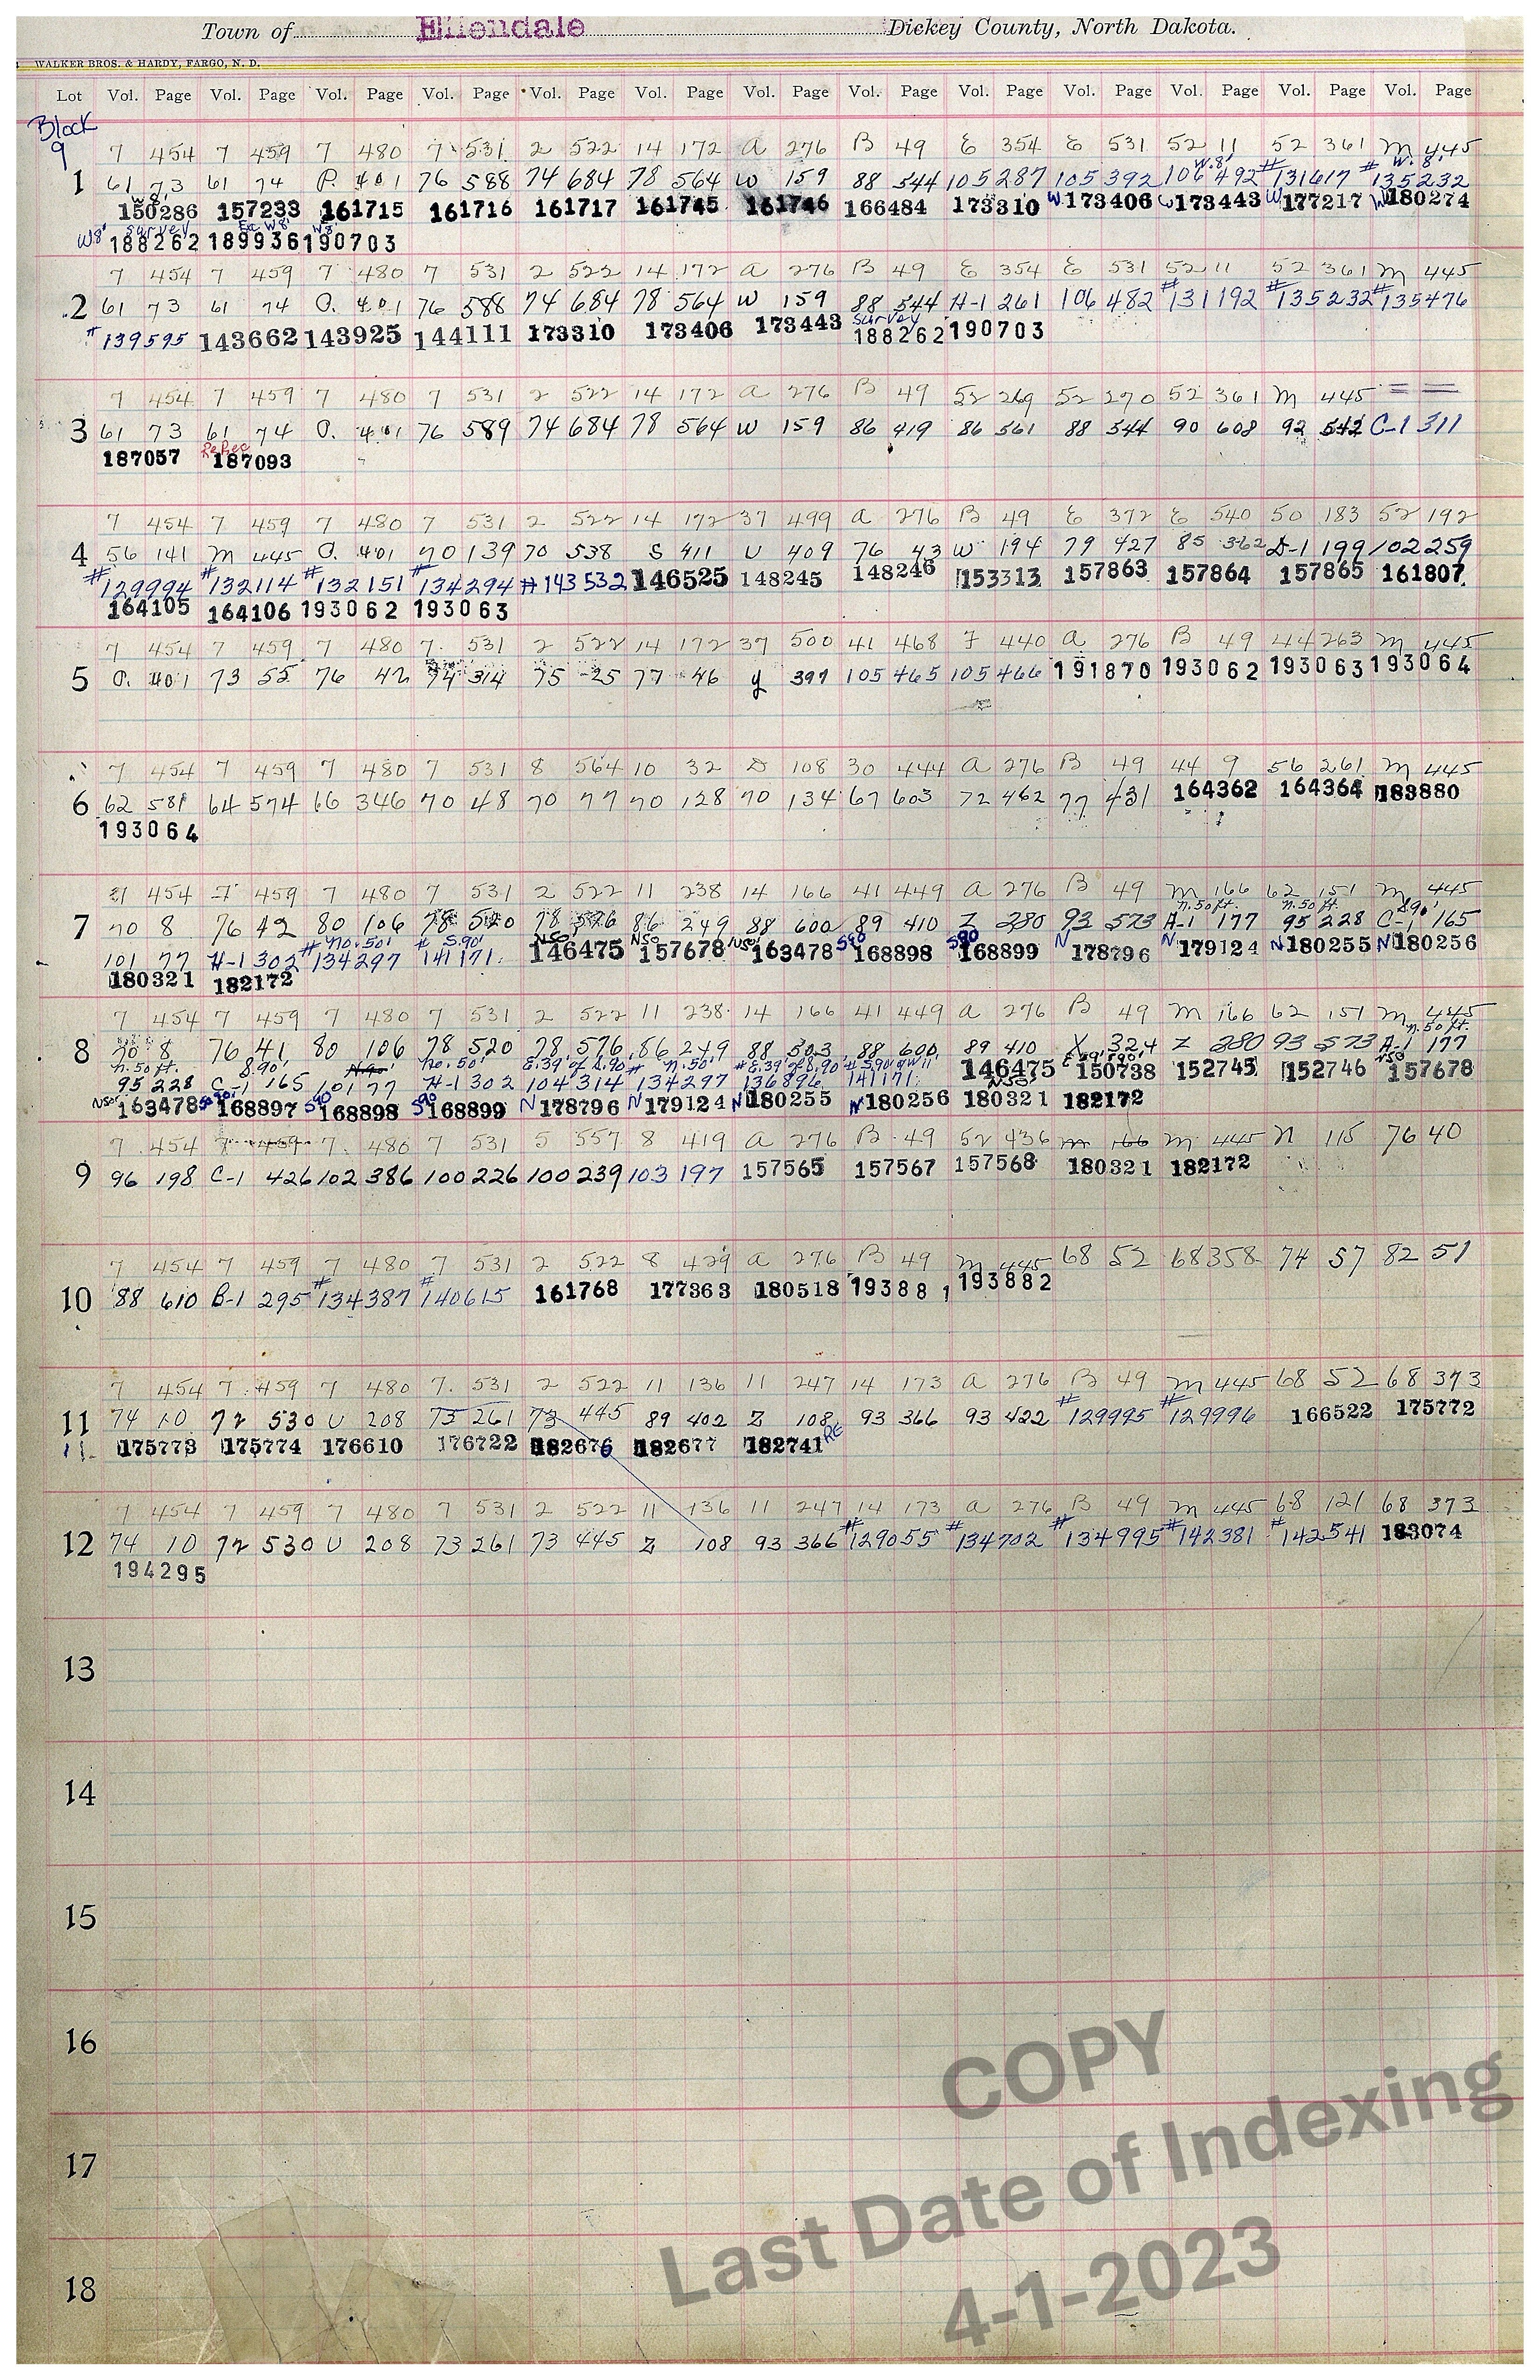 Town of Ellendale Dickey County, North Dakota.
WALKER BROS. & HARDY, FARGO, N. D.
Lot Vol. Page Vol. Page Vol. Page Vol. Page Vol. Page Vol. Page Vol. Page Vol. Page Vol. Page Vol. Page Vol. Page Vol. Page Vol. Page
Block
9
7 454 7 459 7 480 7 531 2 522 14 172 a 276 B 49 E 354 E 531 52 11 52 361 m 445
W.8' # # W. 8'
1 61 73 61 74 P. 401 76 588 74 684 78 564 W 159 88 544 105 287 105 392 106 492 131617 135232
W8'
150286 157233 161715 161716 161717 161745 161746 166484 173310 W 173406 W 173443 W 177217 W 180274
Survey Ex W8' W8'
W8' 188262 189936 190703
7 454 7 459 7 480 7 531 2 522 14 172 a 276 B 49 E 354 E 531 52 11 52 361 m 445
2 61 73 61 74 O. 401 76 588 74 684 78 564 W 159 88 544 H-1 261 106 482 #131192 #135232 #135476
Survey
#139595 143662 143925 144111 173310 173406 173443 188262 190703
7 454 7 459 7 480 7 531 2 522 14 172 a 276 B 49 52 269 52 270 52 361 m 445
3 61 73 61 74 O. 401 76 589 74 684 78 564 W 159 86 419 86 561 88 544 90 608 92 542 C-1 311
ReRec
187057 187093
7 454 7 459 7 480 7 531 2 522 14 172 37 499 a 276 B 49 E 372 E 540 50 183 52 192
4 56 141 m 445 O. 401 70 139 70 538 S 411 U 409 76 43 W 194 79 427 85 362 D-1 199 102 259
#129994 #132114 #132151 #134294 #143532 146525 148245 148246 153313 157863 157864 157865 161807
164105 164106 193062 193063
7 454 7 459 7 480 7. 531 2 522 14 172 37 500 41 468 F 440 a 276 B 49 44 263 m 445
5 O. 401 73 55 76 42 74 314 75 25 77 46 y 397 105 465 105 466 191870 193062 193063 193064
7 454 7 459 7 480 7 531 8 564 10 32 D 108 30 444 a 276 B 49 44 9 56 261 m 445
6 62 581 64 574 66 346 70 48 70 77 70 128 70 134 67 603 72 462 77 431 164362 164364 183880
193064
7 454 7 459 7 480 7 531 2 522 11 238 14 166 41 449 a 276 B 49 m 166 62 151 m 445
n.50 ft. n.50 ft. S.90'
7 70 8 76 42 80 106 78 520 78 576 86 249 88 600 89 410 Z 280 93 573 A-1 177 95 228 C-1 165
# no. 50' # S.90' N50' N50 N50' S90 S90
101 77 H-1 302 134297 141171 146475 157678 163478 168898 168899 N 178796 N 179124 N 180255 N 180256
180321 182172
7 454 7 459 7 480 7 531 2 522 11 238 14 166 41 449 a 276 B 49 m 166 62 151 m 445
n.50 ft.
8 70 8 76 41 80 106 78 520 78 576 86 249 88 503 88 600 89 410 X 324 Z 280 93 573 A-1 177
n.50 ft. S.90' N.90' no. 50' E.39' of S.90' # n.50' # E.39' of S.90' # S.90' of W11' N50
95 228 C-1 165 101 77 H-1 302 104 314 134297 136896 141171 146475 150738 152745 152746 157678
N50' 163478 S90' 168897 S90 168898 S90 168899 N 178796 N 179124 N 180255 N 180256 180321 182172
7 454 7 459 7. 480 7 531 5 557 8 419 a 276 B 49 52 436 m 166 m 445 n 115 76 40
9 96 198 C-1 426 102 386 100 226 100 239 103 197 157565 157567 157568 180321 182172
7 454 7 459 7 480 7 531 2 522 8 429 a 276 B 49 m 445 68 52 68 358 74 57 82 51
10 88 610 B-1 295 #134387 #140615 161768 177363 180518 193881 193882
7 454 7 459 7 480 7. 531 2 522 11 136 11 247 14 173 a 276 B 49 m 445 68 52 68 373
11 74 10 72 530 U 208 73 261 73 445 89 402 Z 108 93 366 93 422 #129995 #129996 166522 175772
11 175773 175774 176610 176722 182676 182677 182741 RE
7 454 7 459 7 480 7 531 2 522 11 136 11 247 14 173 a 276 B 49 m 445 68 121 68 373
12 74 10 72 530 U 208 73 261 73 445 Z 108 93 366 #129055 #134702 #134995 #142381 #142541 183074
194295
13
14
15
16
17
18
COPY
Last Date of Indexing
4-1-2023